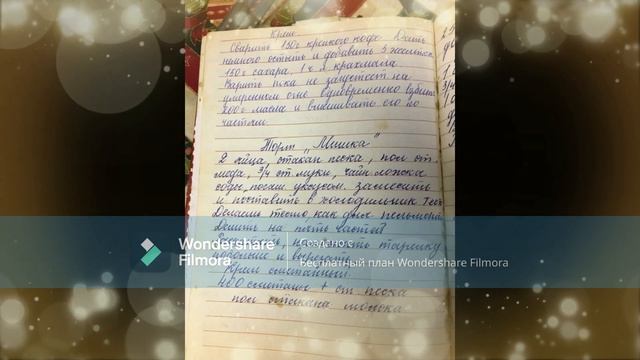 Крем
Сварить 150г крепкого кофе. Дать
немного остыть и добавить 3 желтка
150 г сахара, 1 ч.л крахмала
Варить пока не загустеет на
умеренном огне. Одновременно взбить
200г масла и вмешивать его по
частям.
Торт „Мишка"
2 яйца, стакан песка, пол ст.
меда, 3/4 ст муки, чайн ложка
соды, погаш уксусом. замесить
и поставить в холодильник
Делаем тесто как для пельменей
Делить на пять частей
тарелку
и вырезать
Крем сметанный
400 сметаны + ст песка
пол стакана молока
Wondershare
Filmora
Создано с
Бесплатный план Wondershare Filmora